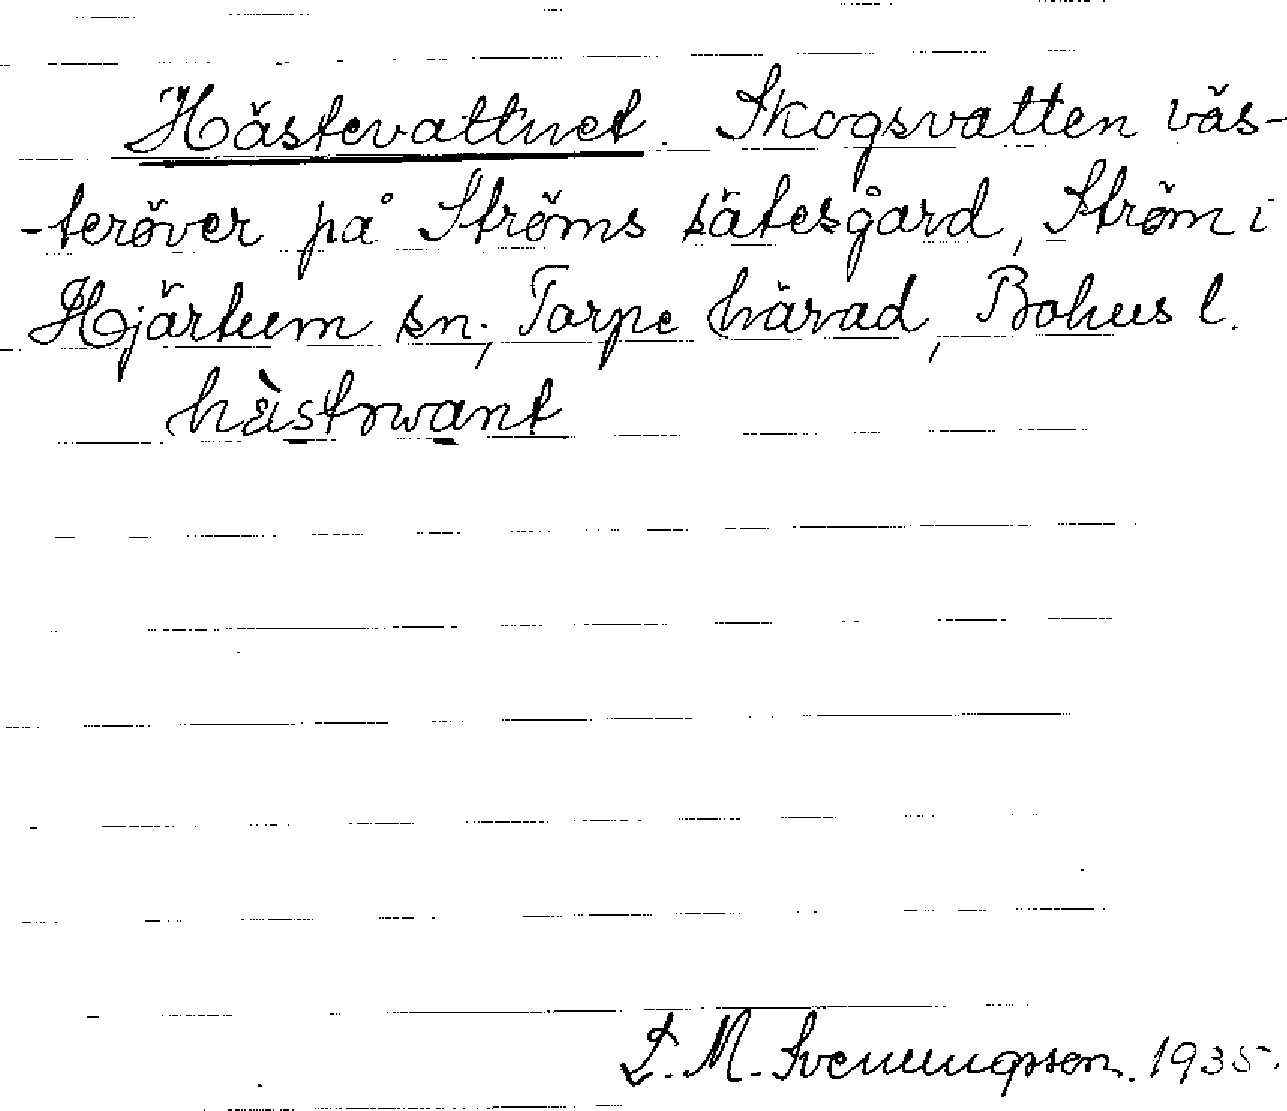 Hästevattnet. Skogsvatten väs-
-teröver på Ströms sätesgård, Ström i
Hjärtum sn., Torpe härad, Bohus l.
hästvwant
L. M. Svenungsson. 1935.